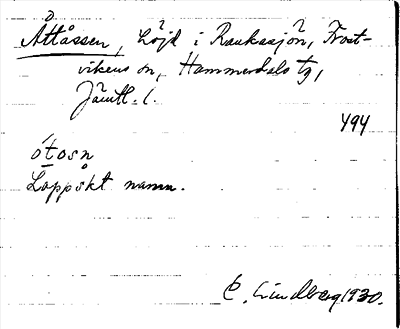 Åttåssen, höjd i Raukasjön, Frost-
vikens sn, Hammerdals tg,
Jämtl. l.
494
ótosn
Lappskt namn.
E. Lindberg 1930.